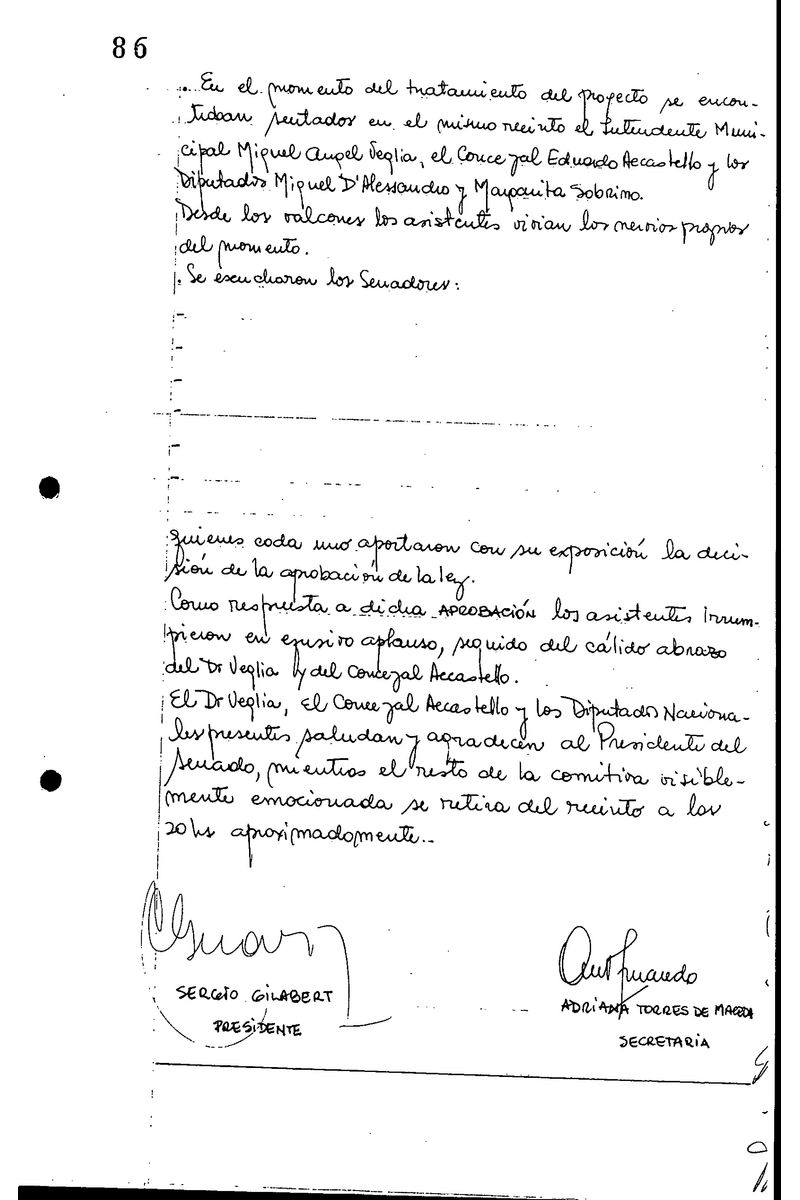 86
. En el momento del tratamiento del proyecto se encon-
traban sentados en el mismo recinto el Intendente Muni-
cipal Miguel Angel Veglia, el Concejal Eduardo Accastello y los
Diputados Miguel D'Alessandro y Margarita Sobrino.
Desde los valcones los asistentes vivian los nervios propios
del momento.
. Se escucharon los Senadores:
-
-
-
-
-
-
quienes cada uno aportaron con su exposición la deci-
sión de la aprobación de la ley.
Como respuesta a dicha APROBACIÓN los asistentes irrum-
pieron en efusivo aplauso, seguido del cálido abrazo
del Dr Veglia y del Concejal Accastello.
El Dr Veglia, el Concejal Accastello y los Diputados Naciona-
les presentes saludan y agradecen al Presidente del
Senado, mientras el resto de la comitiva visible-
mente emocionada se retira del recinto a las
20 hs aproximadamente..
SERGIO GILABERT
PRESIDENTE
ADRIANA TORRES DE MACEDA
SECRETARIA